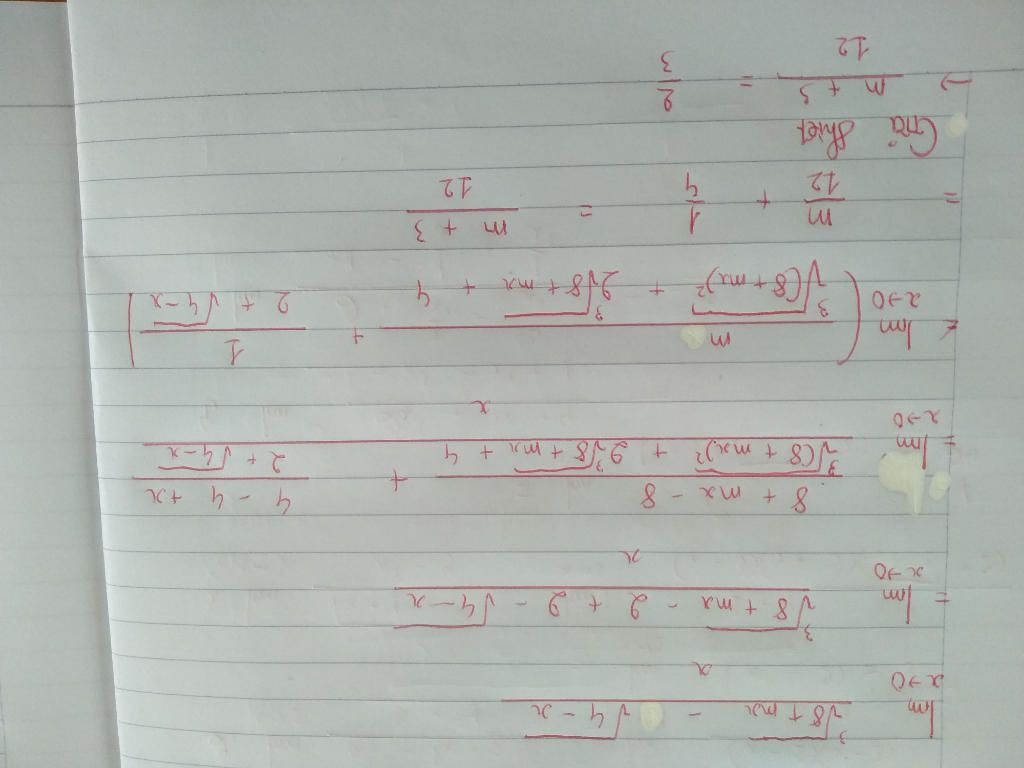 lim x→0 (∛(8 + mx) - √(4 - x)) / x
= lim x→0 (∛(8 + mx) - 2 + 2 - √(4 - x)) / x
= lim x→0 ((8 + mx - 8) / (∛(8 + mx)² + 2∛(8 + mx) + 4) + (4 - 4 + x) / (2 + √(4-x))) / x
= lim x→0 (m / (∛(8 + mx)² + 2∛(8 + mx) + 4) + 1 / (2 + √(4-x)))
= m/12 + 1/4 = (m + 3)/12
Giả thiết
→ (m + 3)/12 = 2/3